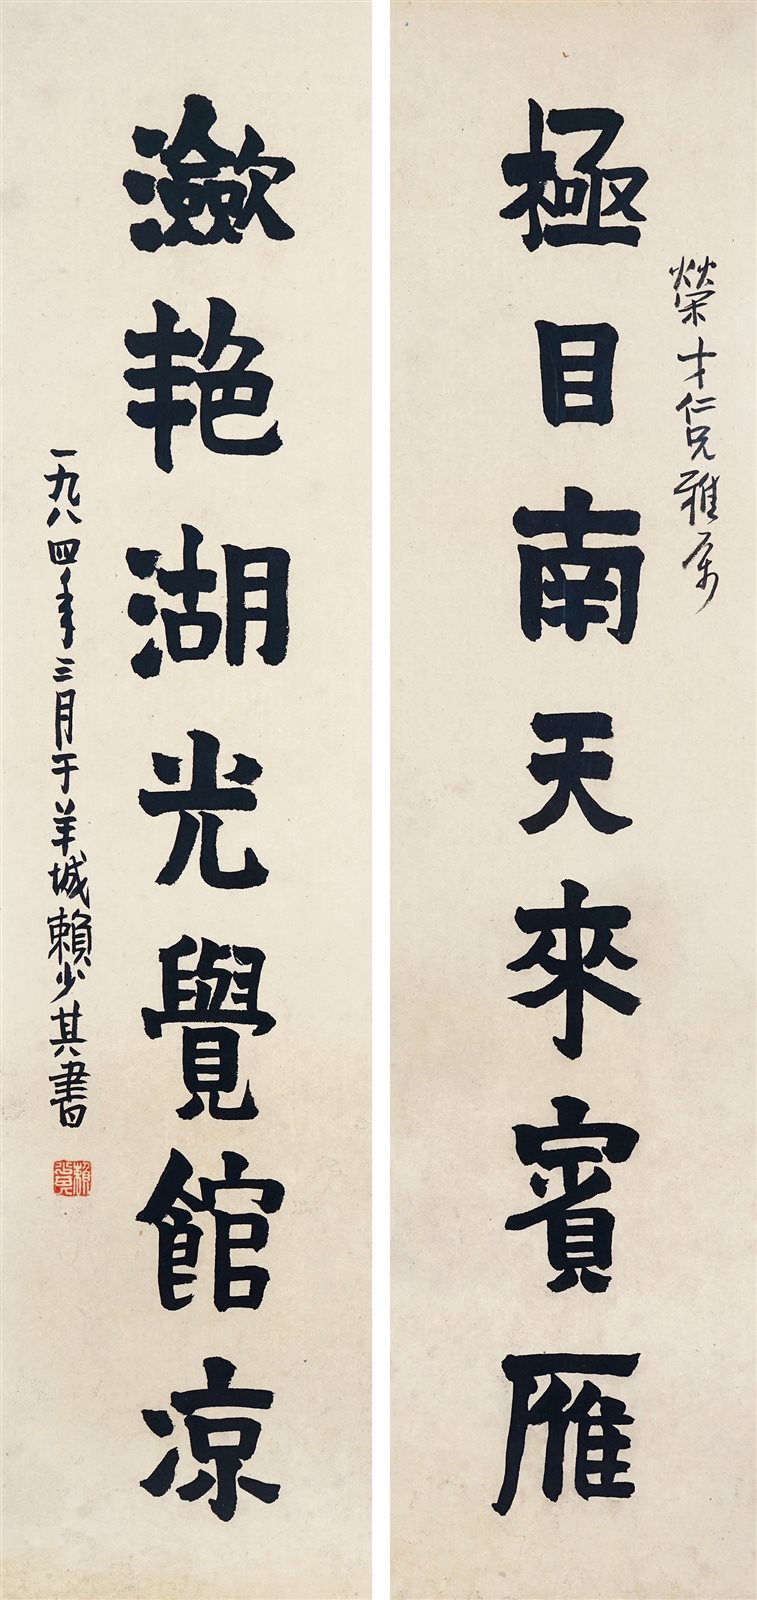 榮才仁兄雅屬
極目南天來賓雁
瀲艷湖光覺館凉
一九八四年三月于羊城賴少其書